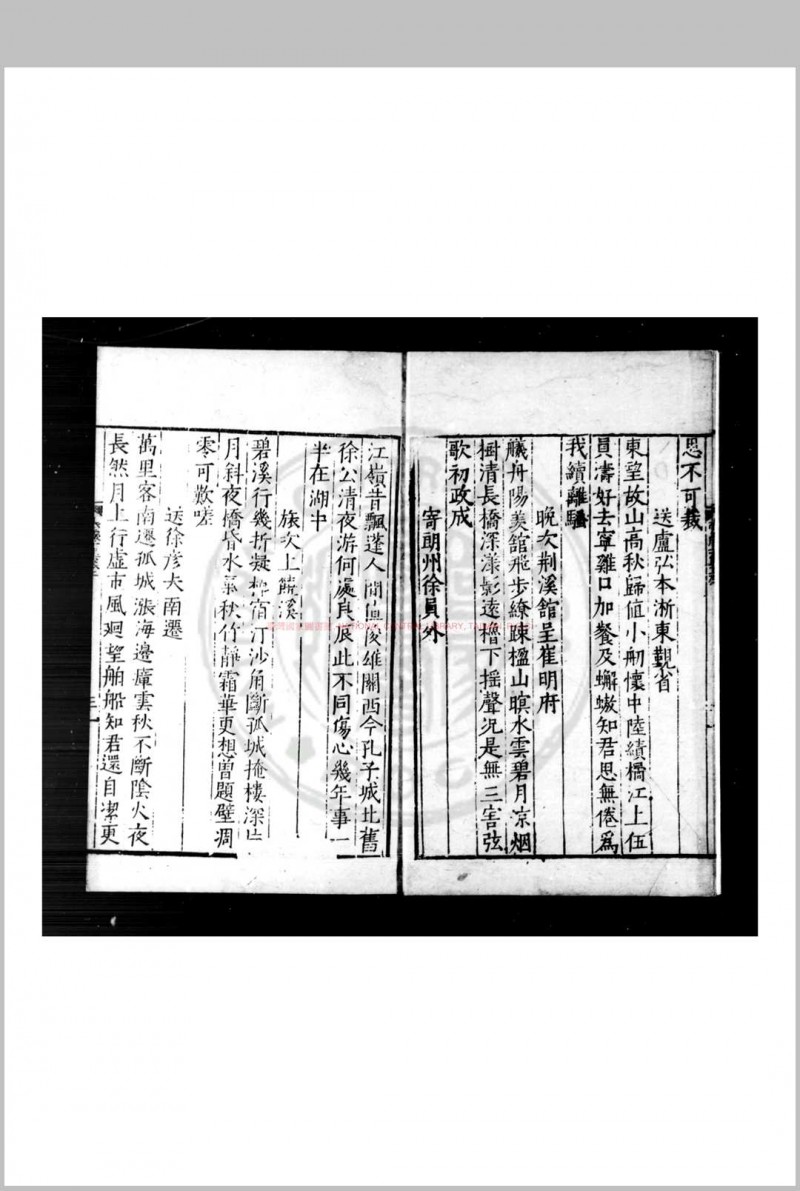 思不可裁
送盧弘本浙東覲省
東望故山高秋歸值小舠懷中陸績橘江上伍
員濤好去寧雞口加餐及蠏螯知君思無倦爲
我續離騷
晚次荆溪館呈崔明府
艤舟陽羨館飛步繚疎楹山暝水雲碧月凉烟
樹清長橋深漾影遠櫓下摇聲況是無三害弦
歌初政成
寄朗州徐員外
江嶺昔飄蓬人間值俊雄關西今孔子城北舊
徐公清夜游何處良辰此不同傷心幾年事一
半在湖中
旅次上饒溪
碧溪行幾折凝棹宿汀沙角斷孤城掩樓深片
月斜夜橋昏水氣秋竹靜霜華更想曽題壁凋
零可歎嗟
送徐彦夫南遷
萬里客南遷孤城漲海邊瘴雲秋不斷陰火夜
長然月上行虛市風迴望舶船知君還自潔更